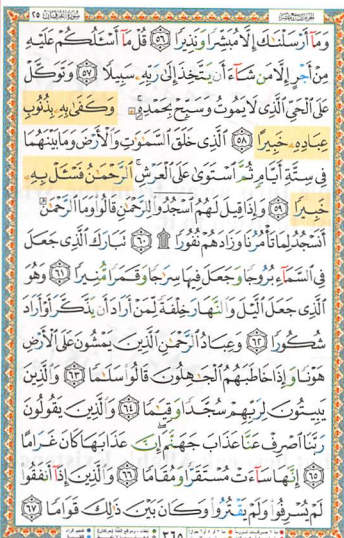 سُورَةُ الفُرْقَان ٢٥
وَمَآ أَرْسَلْنَٰكَ إِلَّا مُبَشِّرًا وَنَذِيرًا ٥٦ قُلْ مَآ أَسْـَٔلُكُمْ عَلَيْهِ
مِنْ أَجْرٍ إِلَّا مَن شَآءَ أَن يَتَّخِذَ إِلَىٰ رَبِّهِۦ سَبِيلًا ٥٧ وَتَوَكَّلْ
عَلَى ٱلْحَيِّ ٱلَّذِى لَا يَمُوتُ وَسَبِّحْ بِحَمْدِهِۦ ۚ وَكَفَىٰ بِهِۦ بِذُنُوبِ
عِبَادِهِۦ خَبِيرًا ٥٨ ٱلَّذِى خَلَقَ ٱلسَّمَٰوَٰتِ وَٱلْأَرْضَ وَمَا بَيْنَهُمَا
فِى سِتَّةِ أَيَّامٍ ثُمَّ ٱسْتَوَىٰ عَلَى ٱلْعَرْشِ ۚ ٱلرَّحْمَٰنُ فَسْـَٔلْ بِهِۦ
خَبِيرًا ٥٩ وَإِذَا قِيلَ لَهُمُ ٱسْجُدُوا۟ لِلرَّحْمَٰنِ قَالُوا۟ وَمَا ٱلرَّحْمَٰنُ
أَنَسْجُدُ لِمَا تَأْمُرُنَا وَزَادَهُمْ نُفُورًا ۩ ٦٠ تَبَارَكَ ٱلَّذِى جَعَلَ
فِى ٱلسَّمَآءِ بُرُوجًا وَجَعَلَ فِيهَا سِرَٰجًا وَقَمَرًا مُّنِيرًا ٦١ وَهُوَ
ٱلَّذِى جَعَلَ ٱلَّيْلَ وَٱلنَّهَارَ خِلْفَةً لِّمَنْ أَرَادَ أَن يَذَّكَّرَ أَوْ أَرَادَ
شُكُورًا ٦٢ وَعِبَادُ ٱلرَّحْمَٰنِ ٱلَّذِينَ يَمْشُونَ عَلَى ٱلْأَرْضِ
هَوْنًا وَإِذَا خَاطَبَهُمُ ٱلْجَٰهِلُونَ قَالُوا۟ سَلَٰمًا ٦٣ وَٱلَّذِينَ
يَبِيتُونَ لِرَبِّهِمْ سُجَّدًا وَقِيَٰمًا ٦٤ وَٱلَّذِينَ يَقُولُونَ
رَبَّنَا ٱصْرِفْ عَنَّا عَذَابَ جَهَنَّمَ ۖ إِنَّ عَذَابَهَا كَانَ غَرَامًا
٦٥ إِنَّهَا سَآءَتْ مُسْتَقَرًّا وَمُقَامًا ٦٦ وَٱلَّذِينَ إِذَآ أَنفَقُوا۟
لَمْ يُسْرِفُوا۟ وَلَمْ يَقْتُرُوا۟ وَكَانَ بَيْنَ ذَٰلِكَ قَوَامًا ٦٧
٣٦٥